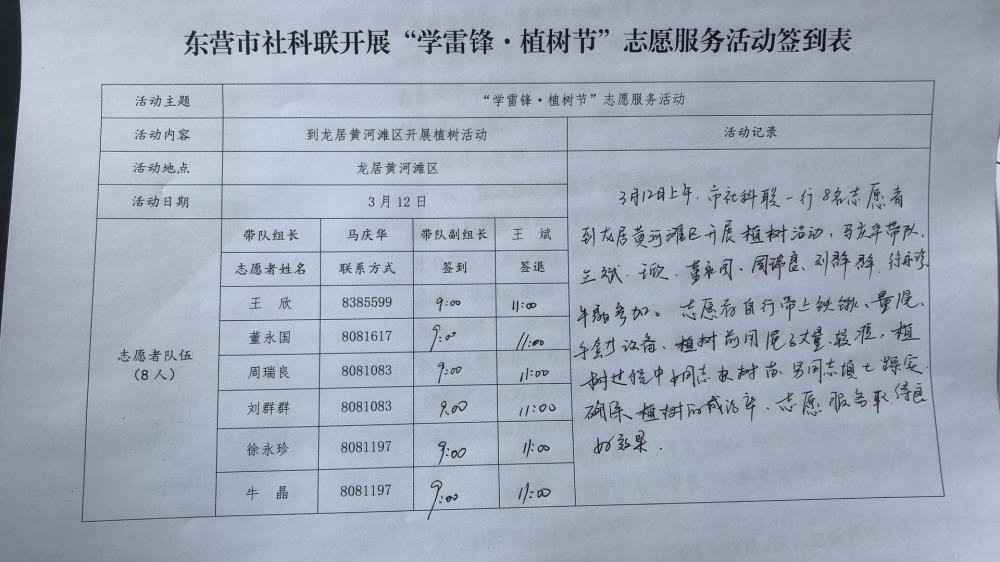 东营市社科联开展“学雷锋·植树节”志愿服务活动签到表
活动主题 “学雷锋·植树节”志愿服务活动
活动内容 到龙居黄河滩区开展植树活动 活动记录
活动地点 龙居黄河滩区
活动日期 3月12日
带队组长 马庆华 带队副组长 王斌
志愿者姓名 联系方式 签到 签退
王欣 8385599 9:00 11:00
董永国 8081617 9:0 11:00
志愿者队伍
(8人)
周瑞良 8081083 9:00 11:00
刘群群 8081083 9:00 11:00
徐永珍 8081197 9:00 11:00
牛晶 8081197 9:00 11:00
3月12日上午,市社科联一行8名志愿者
到龙居黄河滩区开展植树活动,马庆华带队,
王斌、王欣、董永国、周瑞良、刘群群、徐永珍、
牛晶参加。志愿者自行带上铁锹、量尺、
手套等设备、植树前用尺子丈量、较准,植
树过程中女同志扶树苗、男同志填土踩实
确保植树的成活率、志愿服务取得良
好效果.